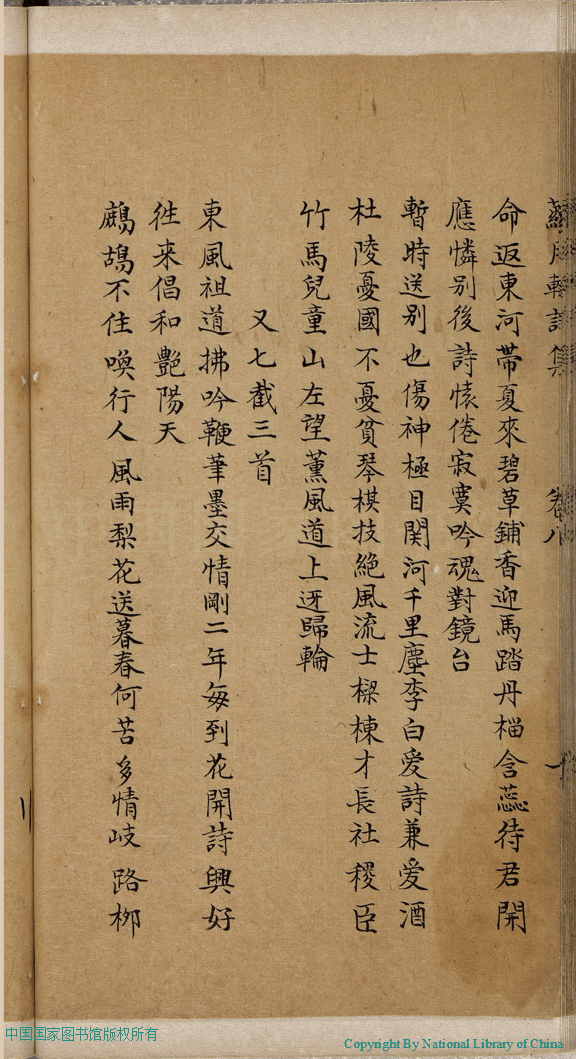 詩集 卷八 十
命返東河帶夏來碧草鋪香迎馬踏丹榴含蕊待君開
應憐別後詩懷倦寂寞吟魂對鏡台
暫時送別也傷神極目関河千里塵李白愛詩兼爱酒
杜陵憂國不憂貧琴棋技絶風流士樑棟才長社稷臣
竹馬兒童山左望薰風道上迓歸輪
又七截三首
東風祖道拂吟鞭筆墨交情剛二年每到花開詩興好
徃来倡和艷陽天
鷓鴣不住喚行人風雨梨花送暮春何苦多情岐路柳
中国国家图书馆版权所有
Copyright By National Library of China